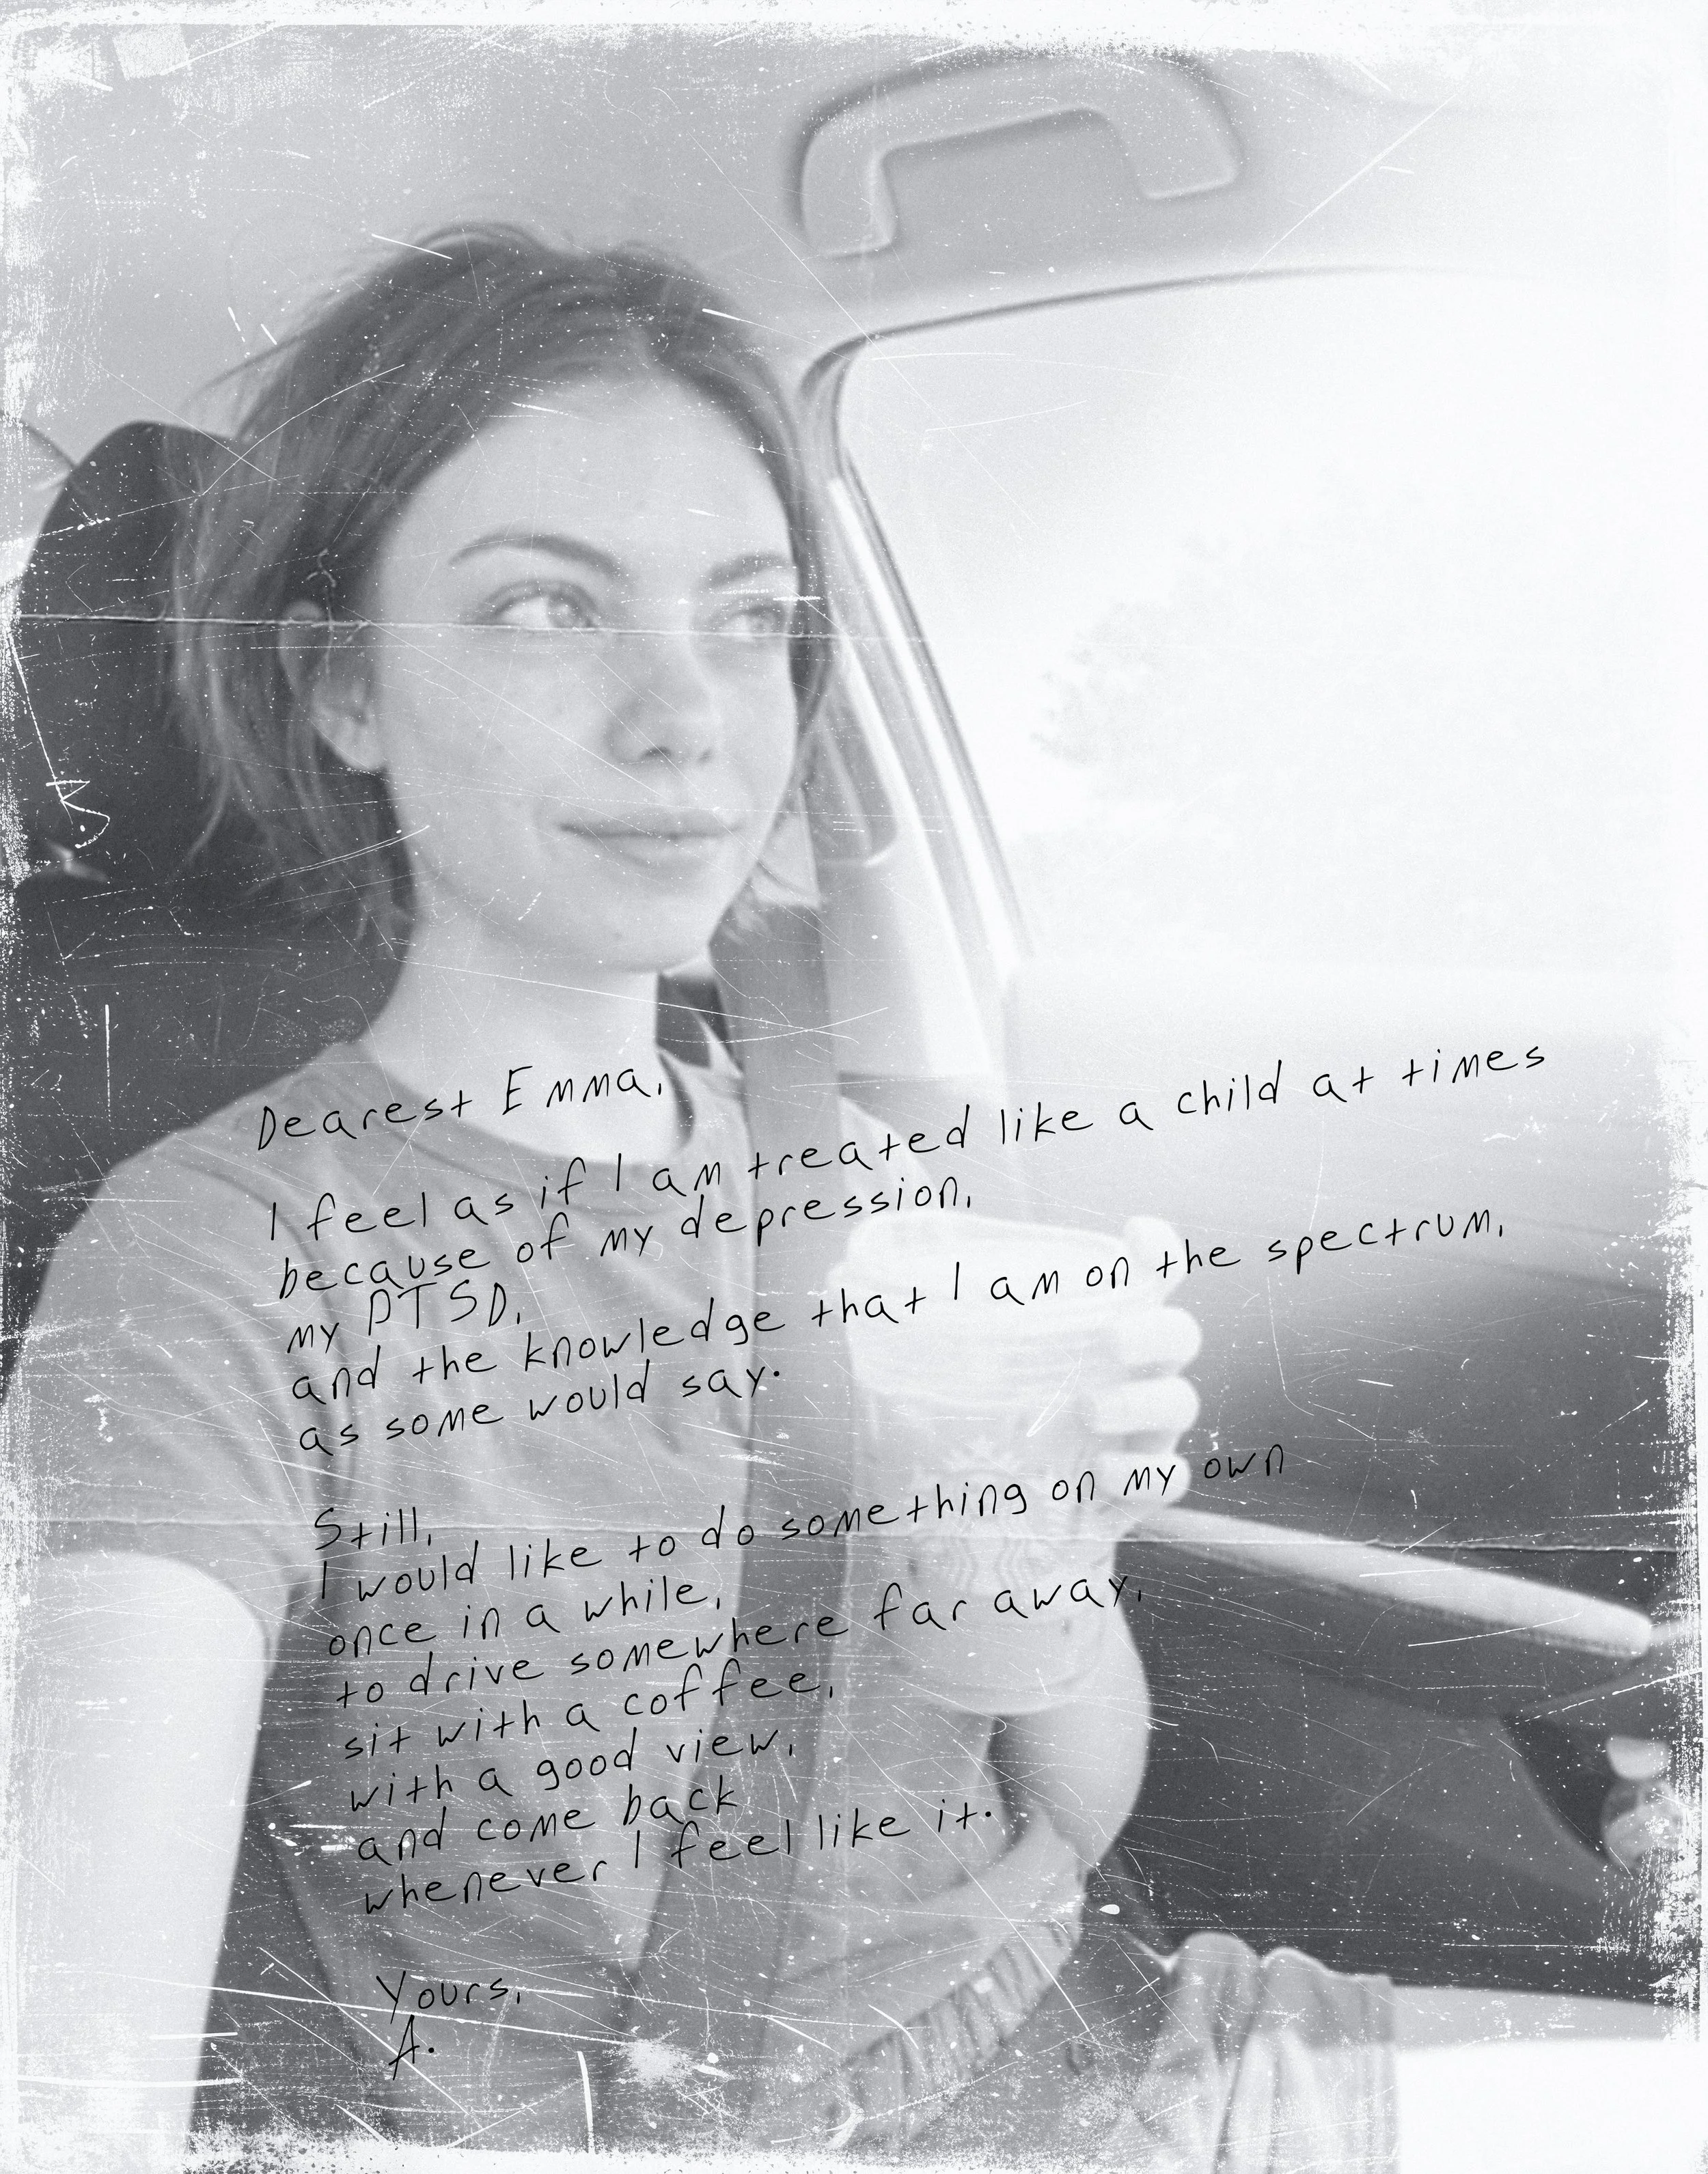 Dearest Emma,
I feel as if I am treated like a child at times
because of my depression,
my PTSD,
and the knowledge that I am on the spectrum,
as some would say.
Still,
I would like to do something on my own
once in a while,
to drive somewhere far away,
sit with a coffee,
with a good view,
and come back
whenever I feel like it.
Yours,
A.